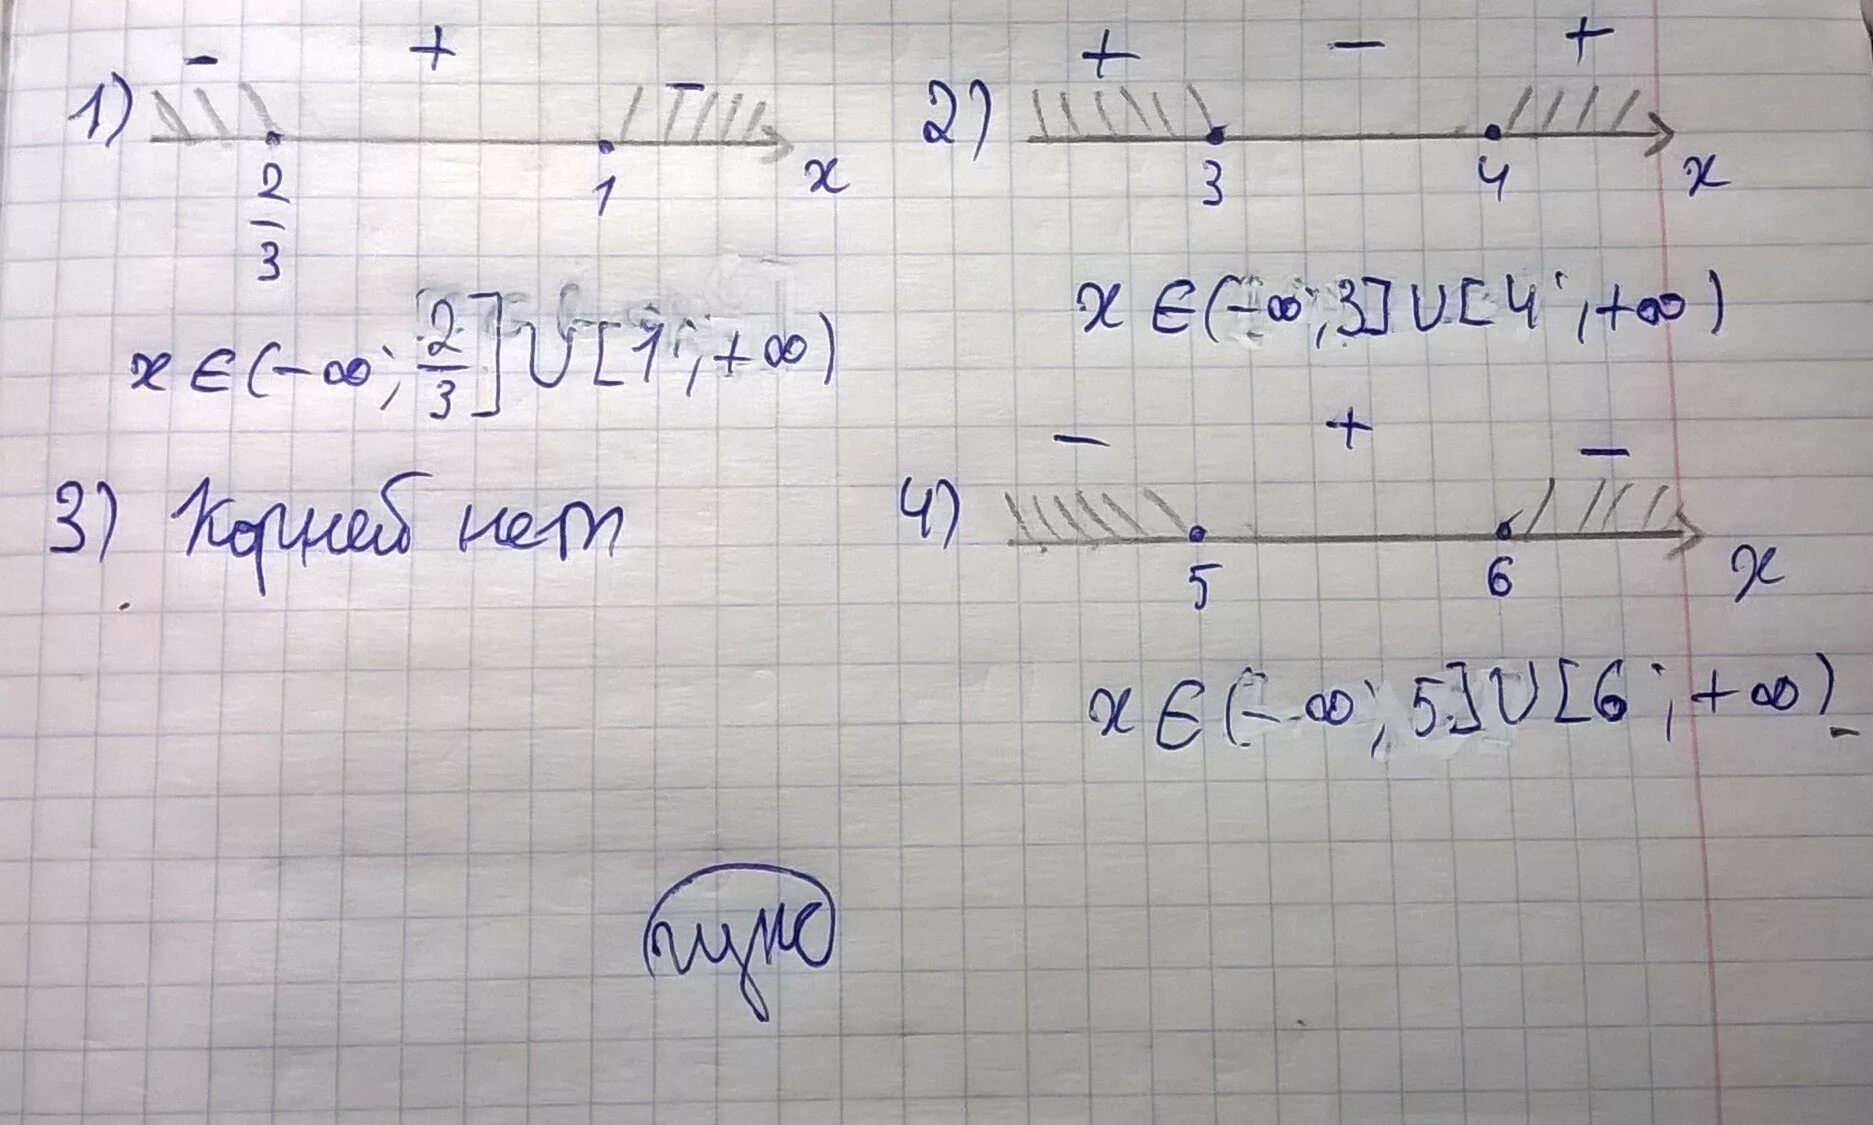 - + -
1) 2/3 1 x
x ∈ (-∞; 2/3] ∪ [1; +∞)
+ - +
2) 3 4 x
x ∈ (-∞; 3] ∪ [4; +∞)
3) Корней нет
- + -
4) 5 6 x
x ∈ (-∞; 5] ∪ [6; +∞)